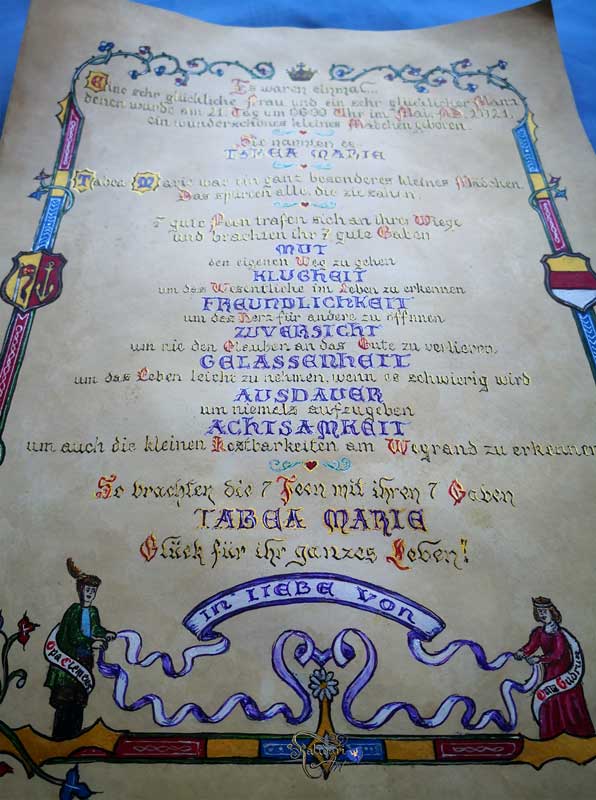 Es waren einmal...
Eine sehr glückliche Frau und ein sehr glücklicher Mann
denen wurde am 21. Tag um 06:30 Uhr im Mai AD. 2021,
ein wunderschönes kleines Mädchen geboren.
Sie nannten es
TABEA MARIE
Tabea Marie war ein ganz besonderes kleines Mädchen.
Das spürten alle, die sie sahen.
7 gute Feen trafen sich an ihrer Wiege
und brachten ihr 7 gute Gaben
MUT
den eigenen Weg zu gehen
KLUGHEIT
um das Wesentliche im Leben zu erkennen
FREUNDLICHKEIT
um das Herz für andere zu öffnen
ZUVERSICHT
um nie den Glauben an das Gute zu verlieren,
GELASSENHEIT
um das Leben leicht zu nehmen, wenn es schwierig wird
AUSDAUER
um niemals aufzugeben
ACHTSAMKEIT
um auch die kleinen Kostbarkeiten am Wegrand zu erkennen
So brachten die 7 Feen mit ihren 7 Gaben
TABEA MARIE
Glück für ihr ganzes Leben!
IN LIEBE VON
Opa Clemens
Oma Gudrun